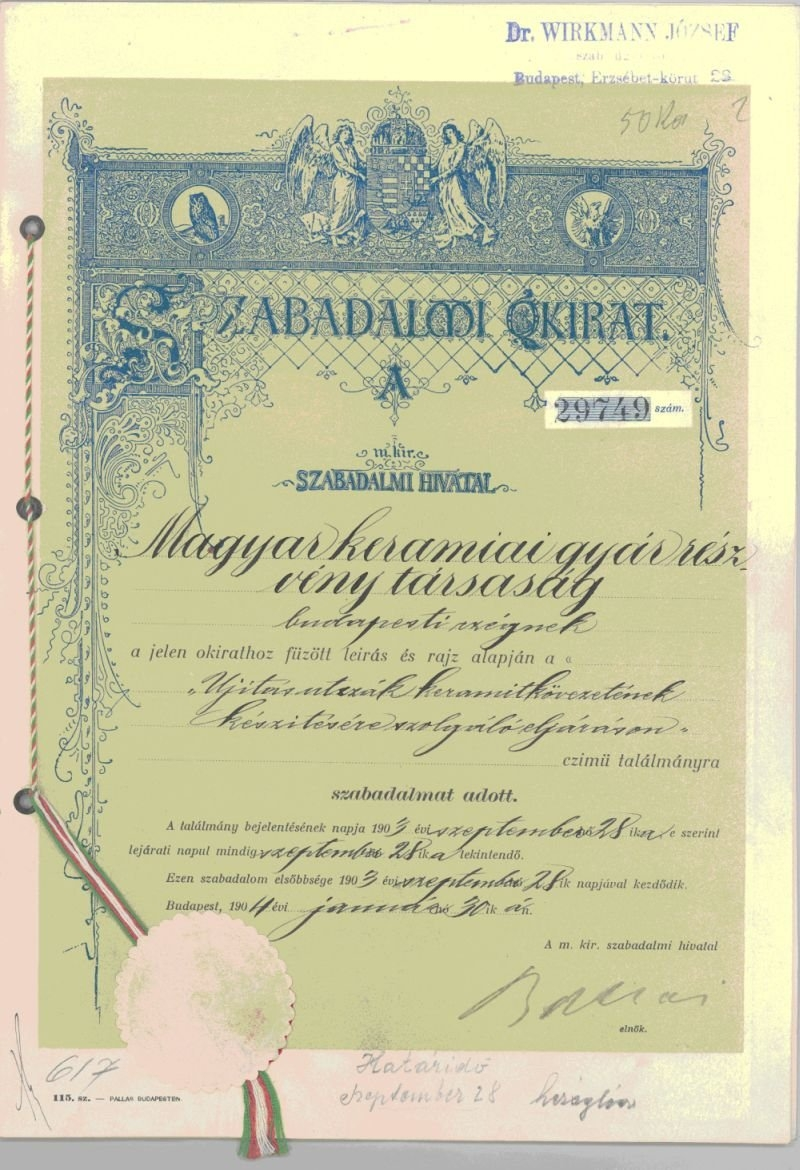 Dr. WIRKMANN JÓZSEF
Budapest, Erzsébet-körut 29
50 Kor
SZABADALMI OKIRAT.
A
29749 szám.
m. kir.
SZABADALMI HIVATAL
Magyar keramiai gyár rész-
vény társaság
budapesti czégnek
a jelen okirathoz füzött leirás és rajz alapján a «
„Ujitás utczák keramitkövezetének
készitésére szolgáló eljáráson"
czimü találmányra
szabadalmat adott.
A találmány bejelentésének napja 1903 évi szeptember 28 ika e szerint
lejárati napul mindig szeptember 28 ika tekintendő.
Ezen szabadalom elsőbbsége 1903 évi szeptember 28 ik napjával kezdődik.
Budapest, 1904 évi január hó 30 ik án.
A m. kir. szabadalmi hivatal
elnök.
617
115. sz. — PALLAS BUDAPESTEN.
Határidő
szeptember 28